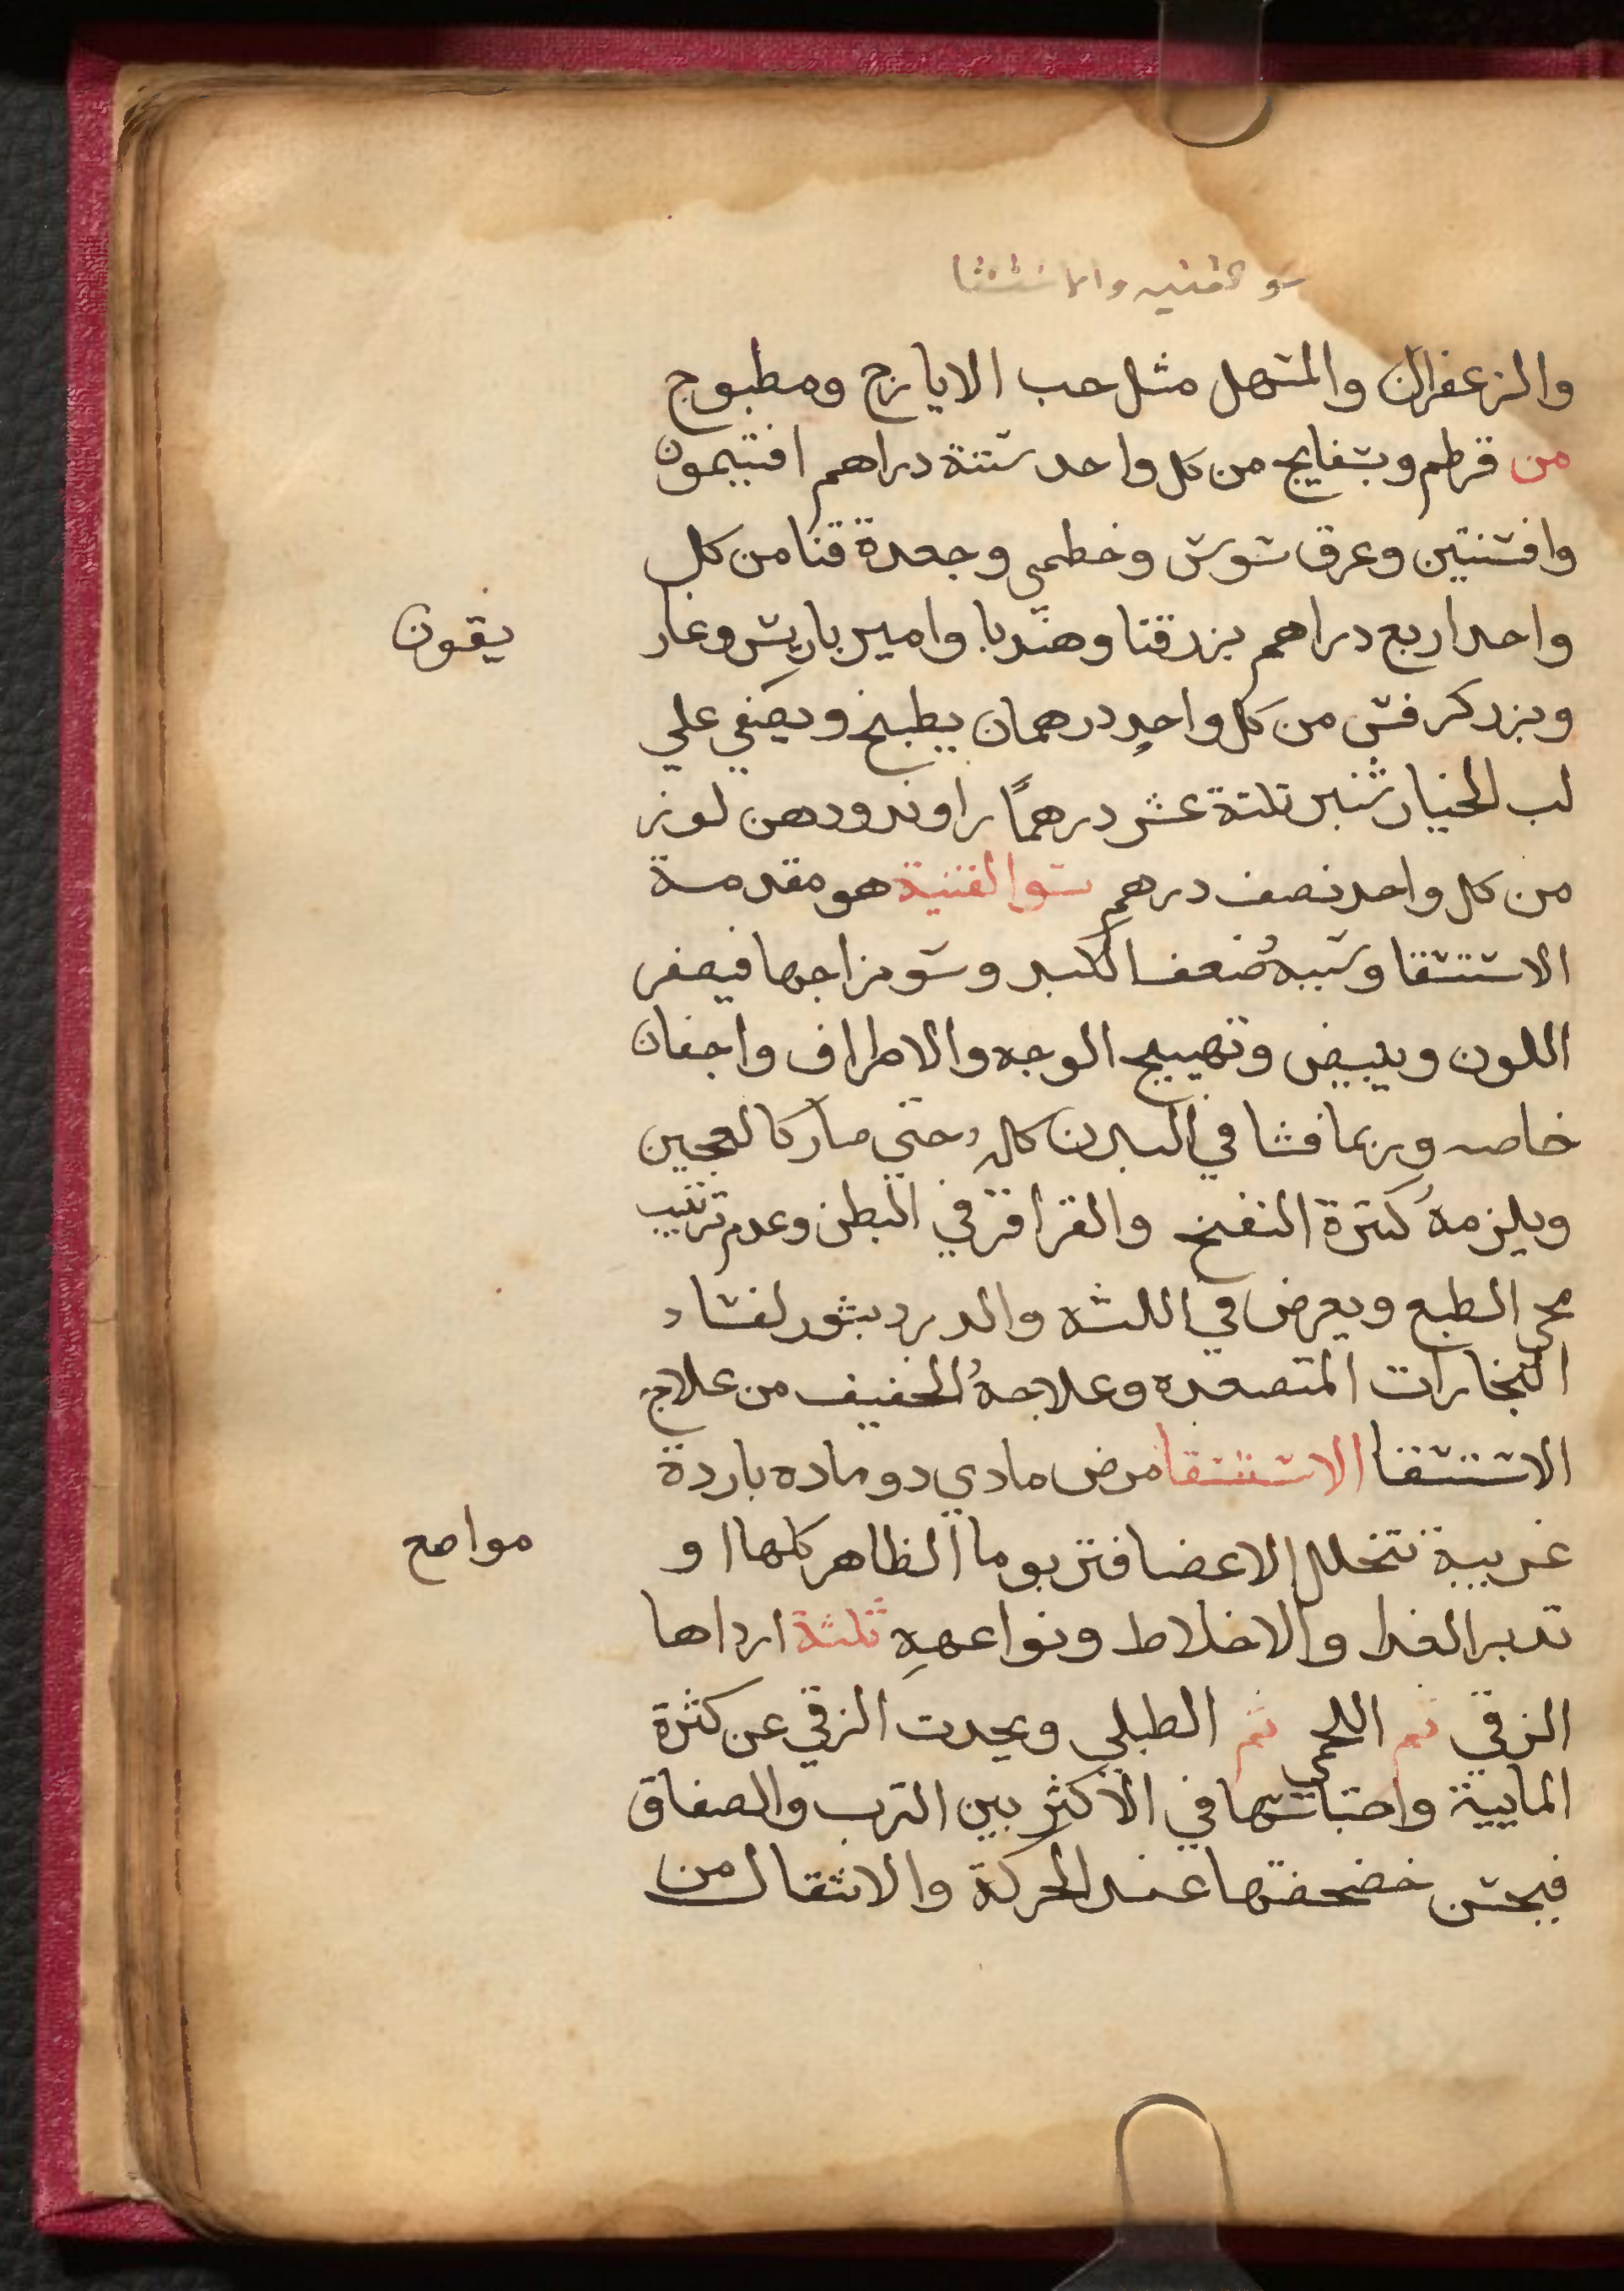 سو القنيه والاستسقا
والزعفران والمسهل مثل حب الايارج ومطبوج
من قرطم وبسفايج من كل واحد ستتة دراهم افتيمون
وافسنتين وعرق سوس وخطمي وجعدة قنا من كل
واحد اربع دراهم بزر قتا وهندبا وامير باريس وغار
يقون
وبزر كرفس من كل واحدٍ درهمان يطبخ ويصفي علي
لب الخيار شنبر تلتة عشر درهمًا راوند ودهن لوز
من كل واحد نصف درهم سو القنية هو مقدمة
الاستسقا وسببهُ ضُعف الكبد وسو مزاجها فيصفر
اللون ويبيض وتهييج الوجه والاطراف واجفان
خاصه وربما فشا في البدن كله حتي صار كالعجين
ويلزمهُ كترة النفخ والقراقر في البطن وعدم ترتيب
مجي الطبع ويعرض في اللثه والدرد بثور لفساد
البخارات المتصعده وعلاجهُ الخفيف من علاج
الاستسقا الاستسقا مرض مادي دو ماده باردة
غريبة تتخلل الاعضا فتربوما الظاهر كلها او
مواصع
تدبر الغدا والاخلاط ونواعهِ ثلثة ارداها
الزقي تم اللحمي ثم الطبلي ويحدت الزقي عن كثرة
الماييية واحتباسها في الاكثر بين الترب والصفاق
فيحس خضحضتها عند الحركة والانتقال من